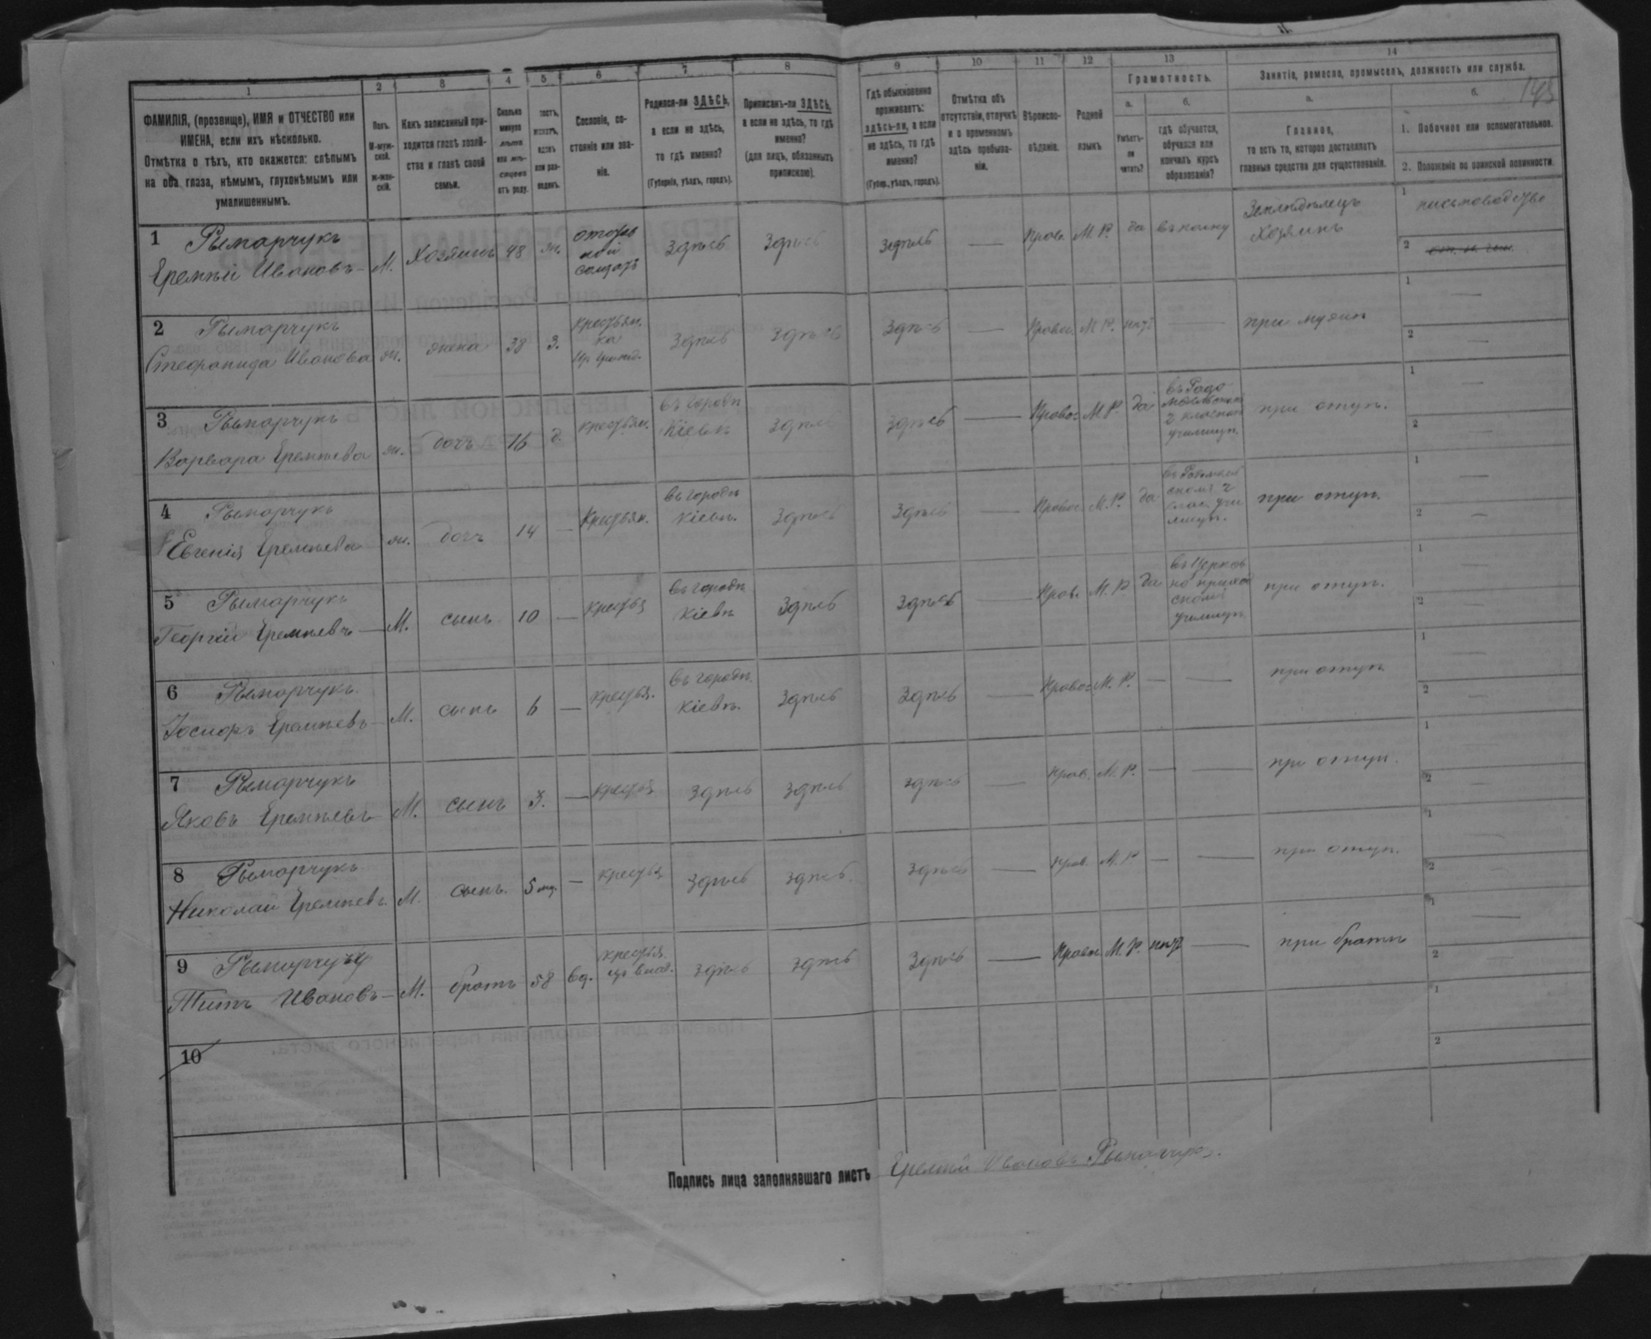 1 2 3 4 5 6 7 8 9 10 11 12 13 14
ФАМИЛІЯ, (прозвище), ИМЯ и ОТЧЕСТВО или
ИМЕНА, если ихъ нѣсколько.
Отмѣтка о тѣхъ, кто окажется: слѣпымъ
на оба глаза, нѣмымъ, глухонѣмымъ или
умалишеннымъ.
Полъ.
М-муж-
ской.
Ж-жен-
скій.
Какъ записанный при-
ходится главѣ хозяй-
ства и главѣ своей
семьи.
Сколько
минуло
лѣтъ
или мѣ-
сяцевъ
отъ роду.
Сословіе, со-
стояніе или зва-
ніе.
Родился-ли ЗДѢСЬ,
а если не здѣсь,
то гдѣ именно?
(Губернія, уѣздъ, городъ).
Приписанъ-ли ЗДѢСЬ,
а если не здѣсь, то гдѣ
именно?
(для лицъ, обязанныхъ
припискою).
Гдѣ обыкновенно
проживаетъ:
здѣсь-ли, а если
не здѣсь, то гдѣ
именно?
(Губер., уѣздъ, городъ).
Отмѣтка объ
отсутствіи, отлучкѣ
и о временномъ
здѣсь пребыва-
ніи.
Вѣроиспо-
вѣданіе.
Родной
языкъ
Грамотность.
а.
Умѣетъ-
ли
читать?
б.
гдѣ обучается,
обучался или
кончилъ курсъ
образованія?
Занятіе, ремесло, промыселъ, должность или служба.
а.
Главное,
то есть то, которое доставляетъ
главныя средства для существованія.
б.
1. Побочное или вспомогательное.
2. Положеніе по воинской повинности.
1 Рымарчукъ
Еремѣй Ивановъ М. Хозяинъ 48 ж. солдатъ Здѣсь Здѣсь Здѣсь — Прав. М. Р. да въ полку
Земледѣлецъ
Хозяинъ
1 письмоводство
2
2 Рымарчукъ
Стефанида Иванова ж. жена 38 З. крестьян
ка
Здѣсь Здѣсь Здѣсь — Правос. М. Р. нѣтъ — при мужѣ
1 —
2 —
3 Рымарчукъ
Варвара Еремѣева ж. дочь 16 крестьян.
въ городѣ
Кіевѣ Здѣсь Здѣсь — Правос. М. Р. да
2 класном
училищѣ
при отцѣ.
1 —
2 —
4 Рымарчукъ
Евгенія Еремѣева ж. дочь 14 — Крестьян.
въ городѣ
Кіевѣ. Здѣсь Здѣсь — Правос. М. Р. да
при отцѣ.
1 —
2 —
5 Рымарчукъ
Георгій Еремѣевъ М. сынъ 10 — крестья
въ городѣ
Кіевѣ Здѣсь Здѣсь — Прав. М. Р. да
въ Церков
но приход
скомъ
училищѣ
при отцѣ.
1 —
2 —
6 Рымарчукъ
Іосифъ Еремѣевъ М. сынъ 6 — крестья.
въ городѣ
Кіевѣ. Здѣсь Здѣсь — Правос. М. Р. — — при отцѣ
1 —
2 —
7 Рымарчукъ
Яковъ Еремѣевъ М. сынъ 3. — крестья Здѣсь Здѣсь здѣсь — Прав. М. Р. — — при отцѣ.
1 —
2 —
8 Рымарчукъ
Николай Еремѣевъ М. сынъ. 5 мѣс. — крестья Здѣсь здѣсь. Здѣсь — Прав. М. Р. — — при отцѣ.
1
2 —
9 Рымарчукъ
Титъ Ивановъ М. братъ 58 вд. крестья.
здѣсь здѣсь Здѣсь — Правос. М. Р. нѣтъ — при братѣ
1 —
2 —
10
1
2
Подпись лица заполнявшаго листъ Еремѣй Ивановъ Рымарчукъ.